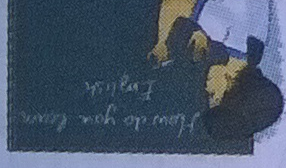 How do you learn
English